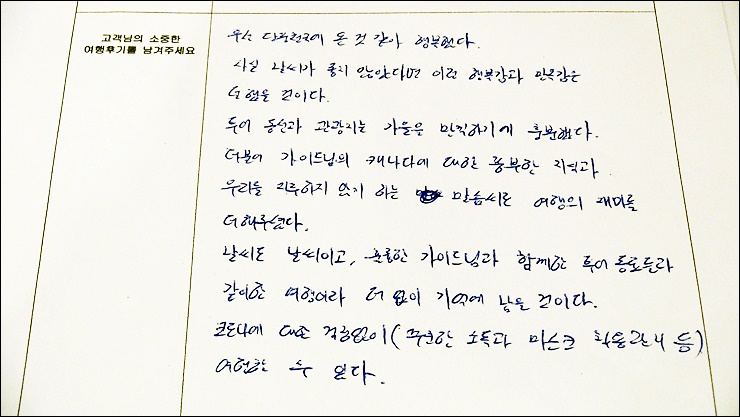 고객님의 소중한
여행후기를 남겨주세요
우선 단풍천국에 온 것 같아 행복했다.
사실 날씨가 좋지 않았다면 이런 행복감과 만족감은
덜했을 것이다.
투어 동선과 관광지는 가을을 만끽하기에 충분했다.
더불어 가이드님의 캐나다에 대한 풍부한 지식과
우리를 지루하지 않게 하는 말솜씨로 여행의 재미를
더해주셨다.
날씨도 날씨이고, 훌륭한 가이드님과 함께한 투어 동료들과
같이한 여행이라 더 없이 기억에 남을 것이다.
코로나에 대한 걱정없이( 소독과 마스크 착용관리 등)
여행할 수 있다.